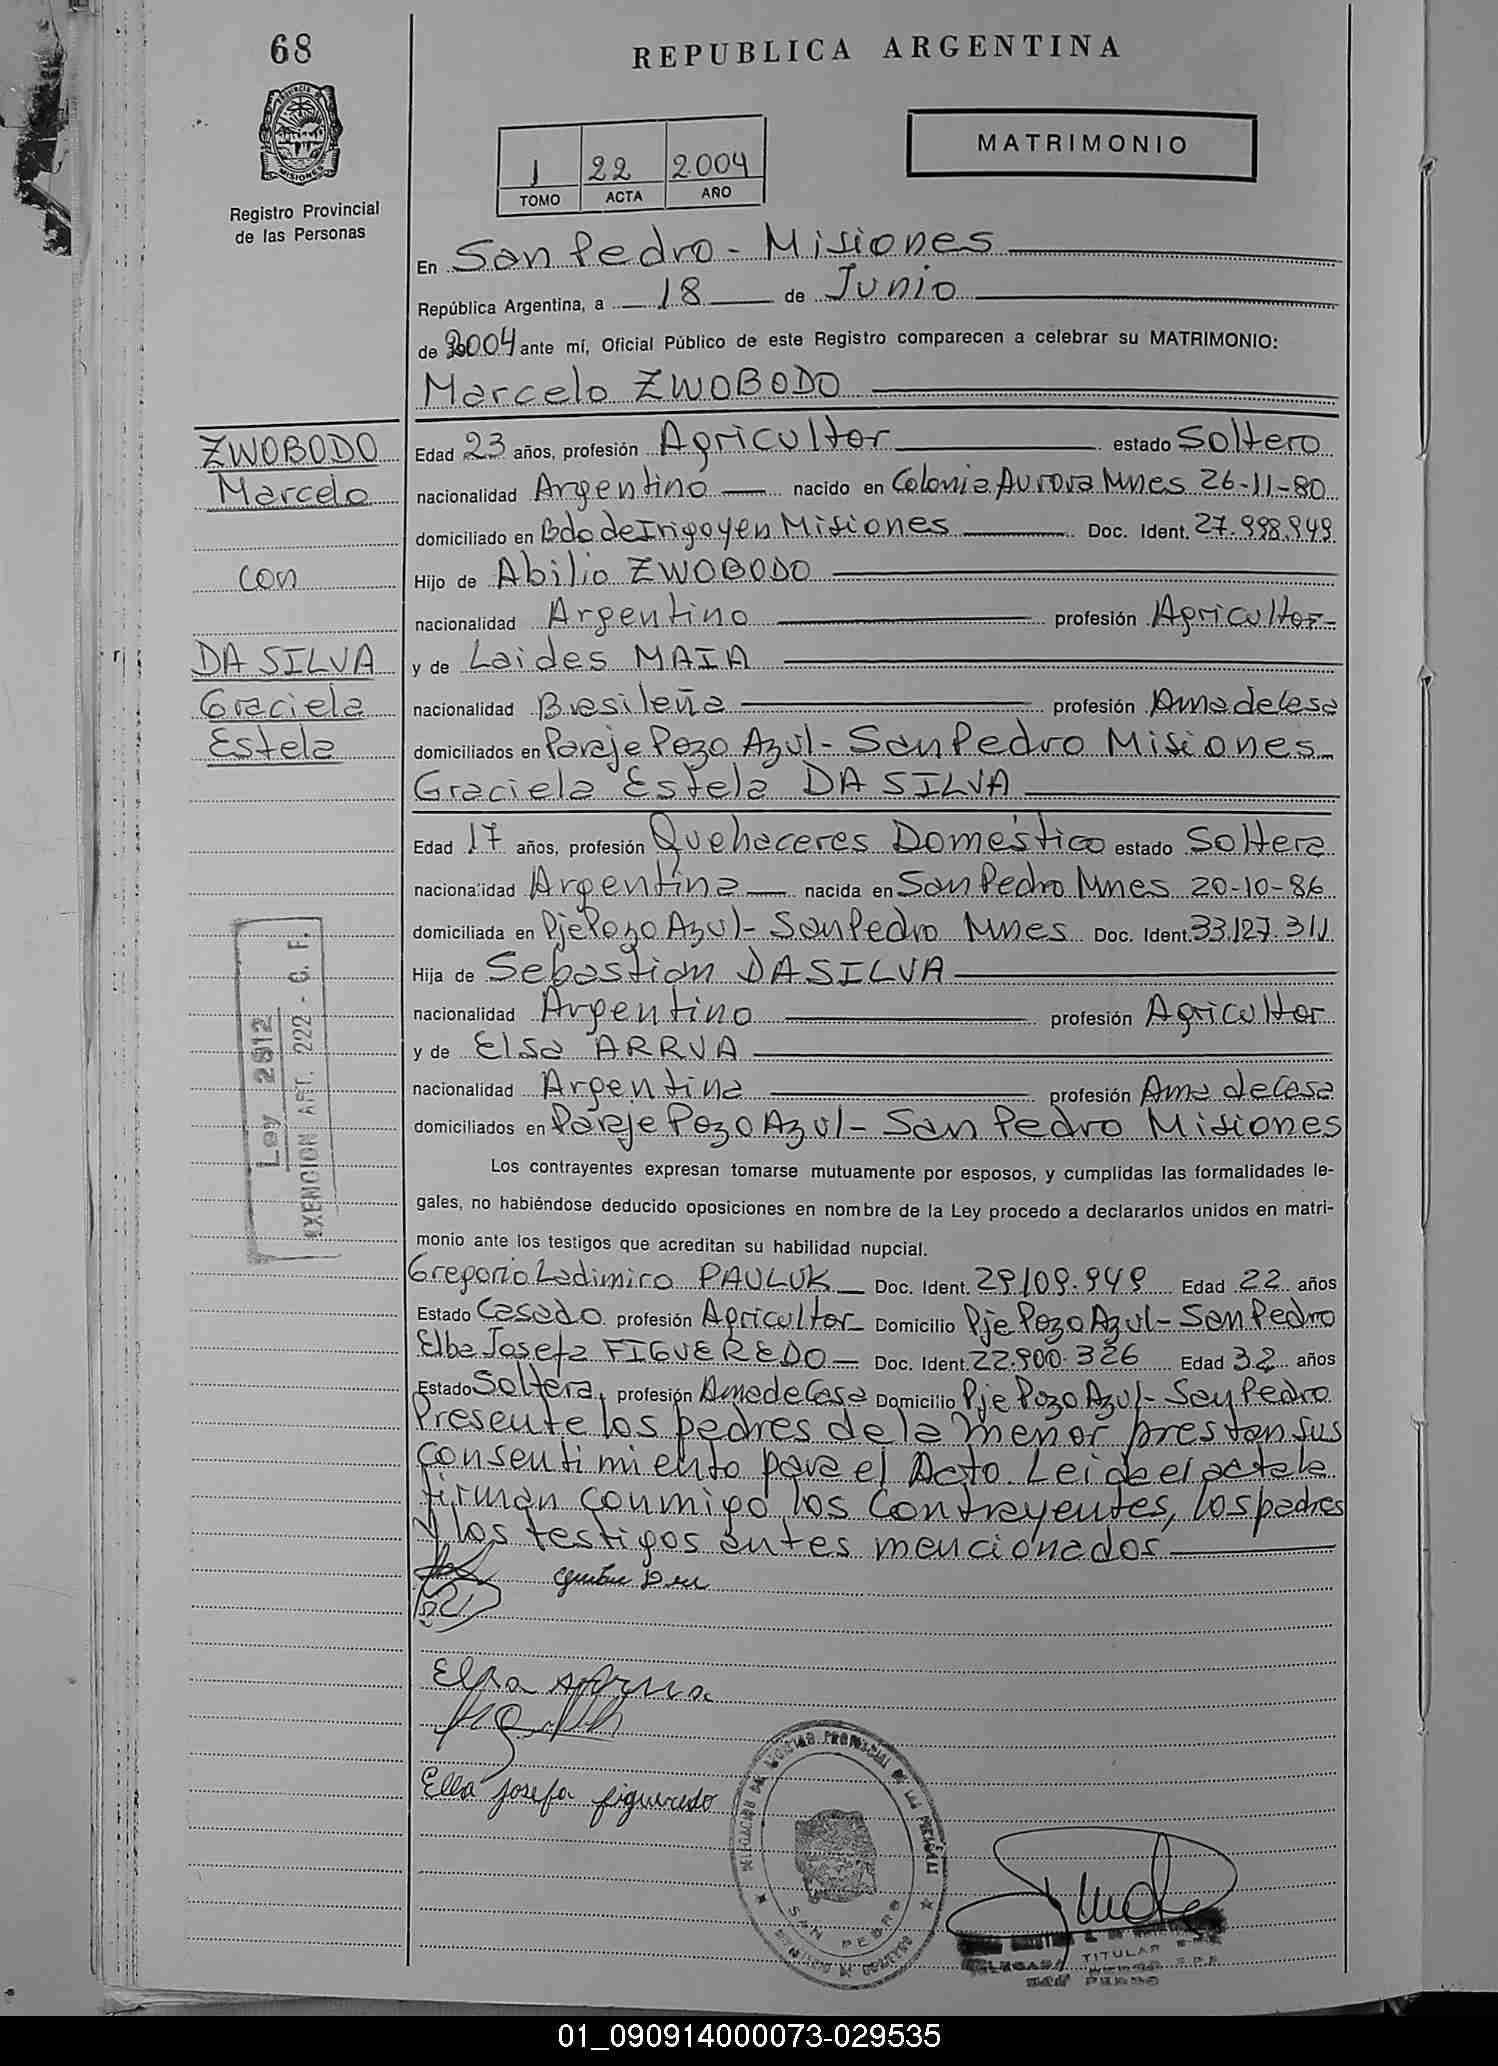 68
REPUBLICA ARGENTINA
MATRIMONIO
1 22 2004
TOMO ACTA AÑO
Registro Provincial
de las Personas
En San Pedro - Misiones
República Argentina, a 18 de Junio
de 2004 ante mí, Oficial Público de este Registro comparecen a celebrar su MATRIMONIO:
Marcelo ZWOBODO
ZWOBODO
Marcelo
con
DA SILVA
Graciela
Estela
Edad 23 años, profesión Agricultor estado Soltero
nacionalidad Argentino nacido en Colonia Aurora Mnes 26-11-80
domiciliado en Bdo de Irigoyen Misiones Doc. Ident. 27.998.949
Hijo de Abilio ZWOBODO
nacionalidad Argentino profesión Agricultor
y de Laides MAIA
nacionalidad Brasileña profesión Ama de Casa
domiciliados en Paraje Pozo Azul - San Pedro Misiones
Graciela Estela DA SILVA
Edad 17 años, profesión Quehaceres Doméstico estado Soltera
nacionalidad Argentina nacida en San Pedro Mnes 20-10-86
domiciliada en Pje Pozo Azul - San Pedro Mnes Doc. Ident. 33.127.311
Hija de Sebastian DA SILVA
nacionalidad Argentino profesión Agricultor
y de Elsa ARRUA
nacionalidad Argentina profesión Ama de Casa
domiciliados en Paraje Pozo Azul - San Pedro Misiones
Ley 2812
EXENCION ART. 222 - C. F.
Los contrayentes expresan tomarse mutuamente por esposos, y cumplidas las formalidades le-
gales, no habiéndose deducido oposiciones en nombre de la Ley procedo a declararlos unidos en matri-
monio ante los testigos que acreditan su habilidad nupcial.
Gregorio Ladimiro PAULUK Doc. Ident. 29.109.949 Edad 22 años
Estado Casado profesión Agricultor Domicilio Pje Pozo Azul - San Pedro
Elba Josefa FIGUEREDO Doc. Ident. 22.900.326 Edad 32 años
Estado Soltera, profesión Ama de Casa Domicilio Pje Pozo Azul - San Pedro
Presente los padres de la menor prestan sus
consentimiento para el Acto. Leida el acta la
firman conmigo los Contrayentes, los padres
y los testigos antes mencionados
Elsa Arrua
Elba Josefa figueredo
DELEGACION DEL REGISTRO PROVINCIAL DE LAS PERSONAS
SAN PEDRO
TITULAR
SAN PEDRO
01_090914000073-029535